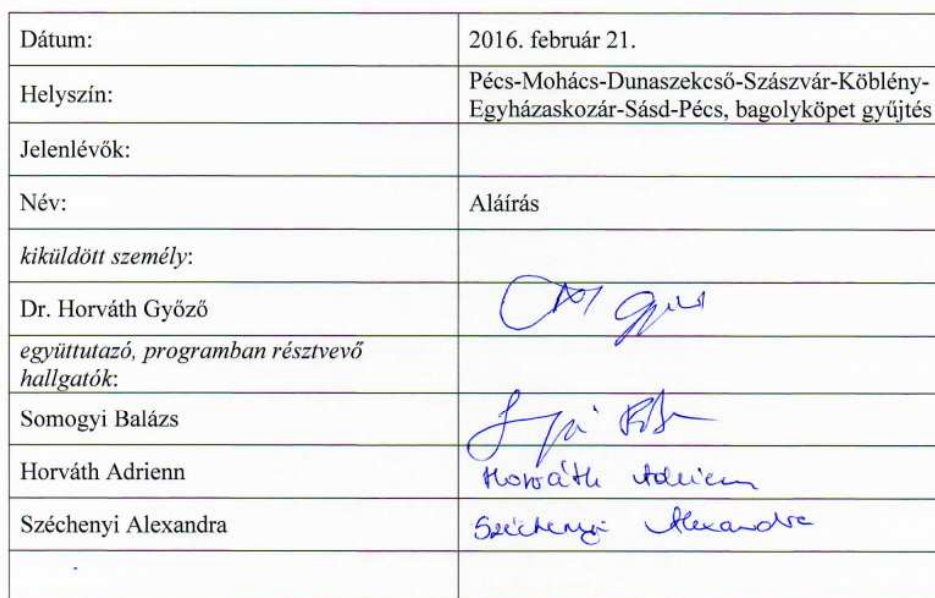 Dátum: 2016. február 21.
Helyszín: Pécs-Mohács-Dunaszekcső-Szászvár-Köblény-
Egyházaskozár-Sásd-Pécs, bagolyköpet gyűjtés
Jelenlévők:
Név: Aláírás
kiküldött személy:
Dr. Horváth Győző
együttutazó, programban résztvevő
hallgatók:
Somogyi Balázs
Horváth Adrienn Horváth Adrienn
Széchenyi Alexandra Széchenyi Alexandra